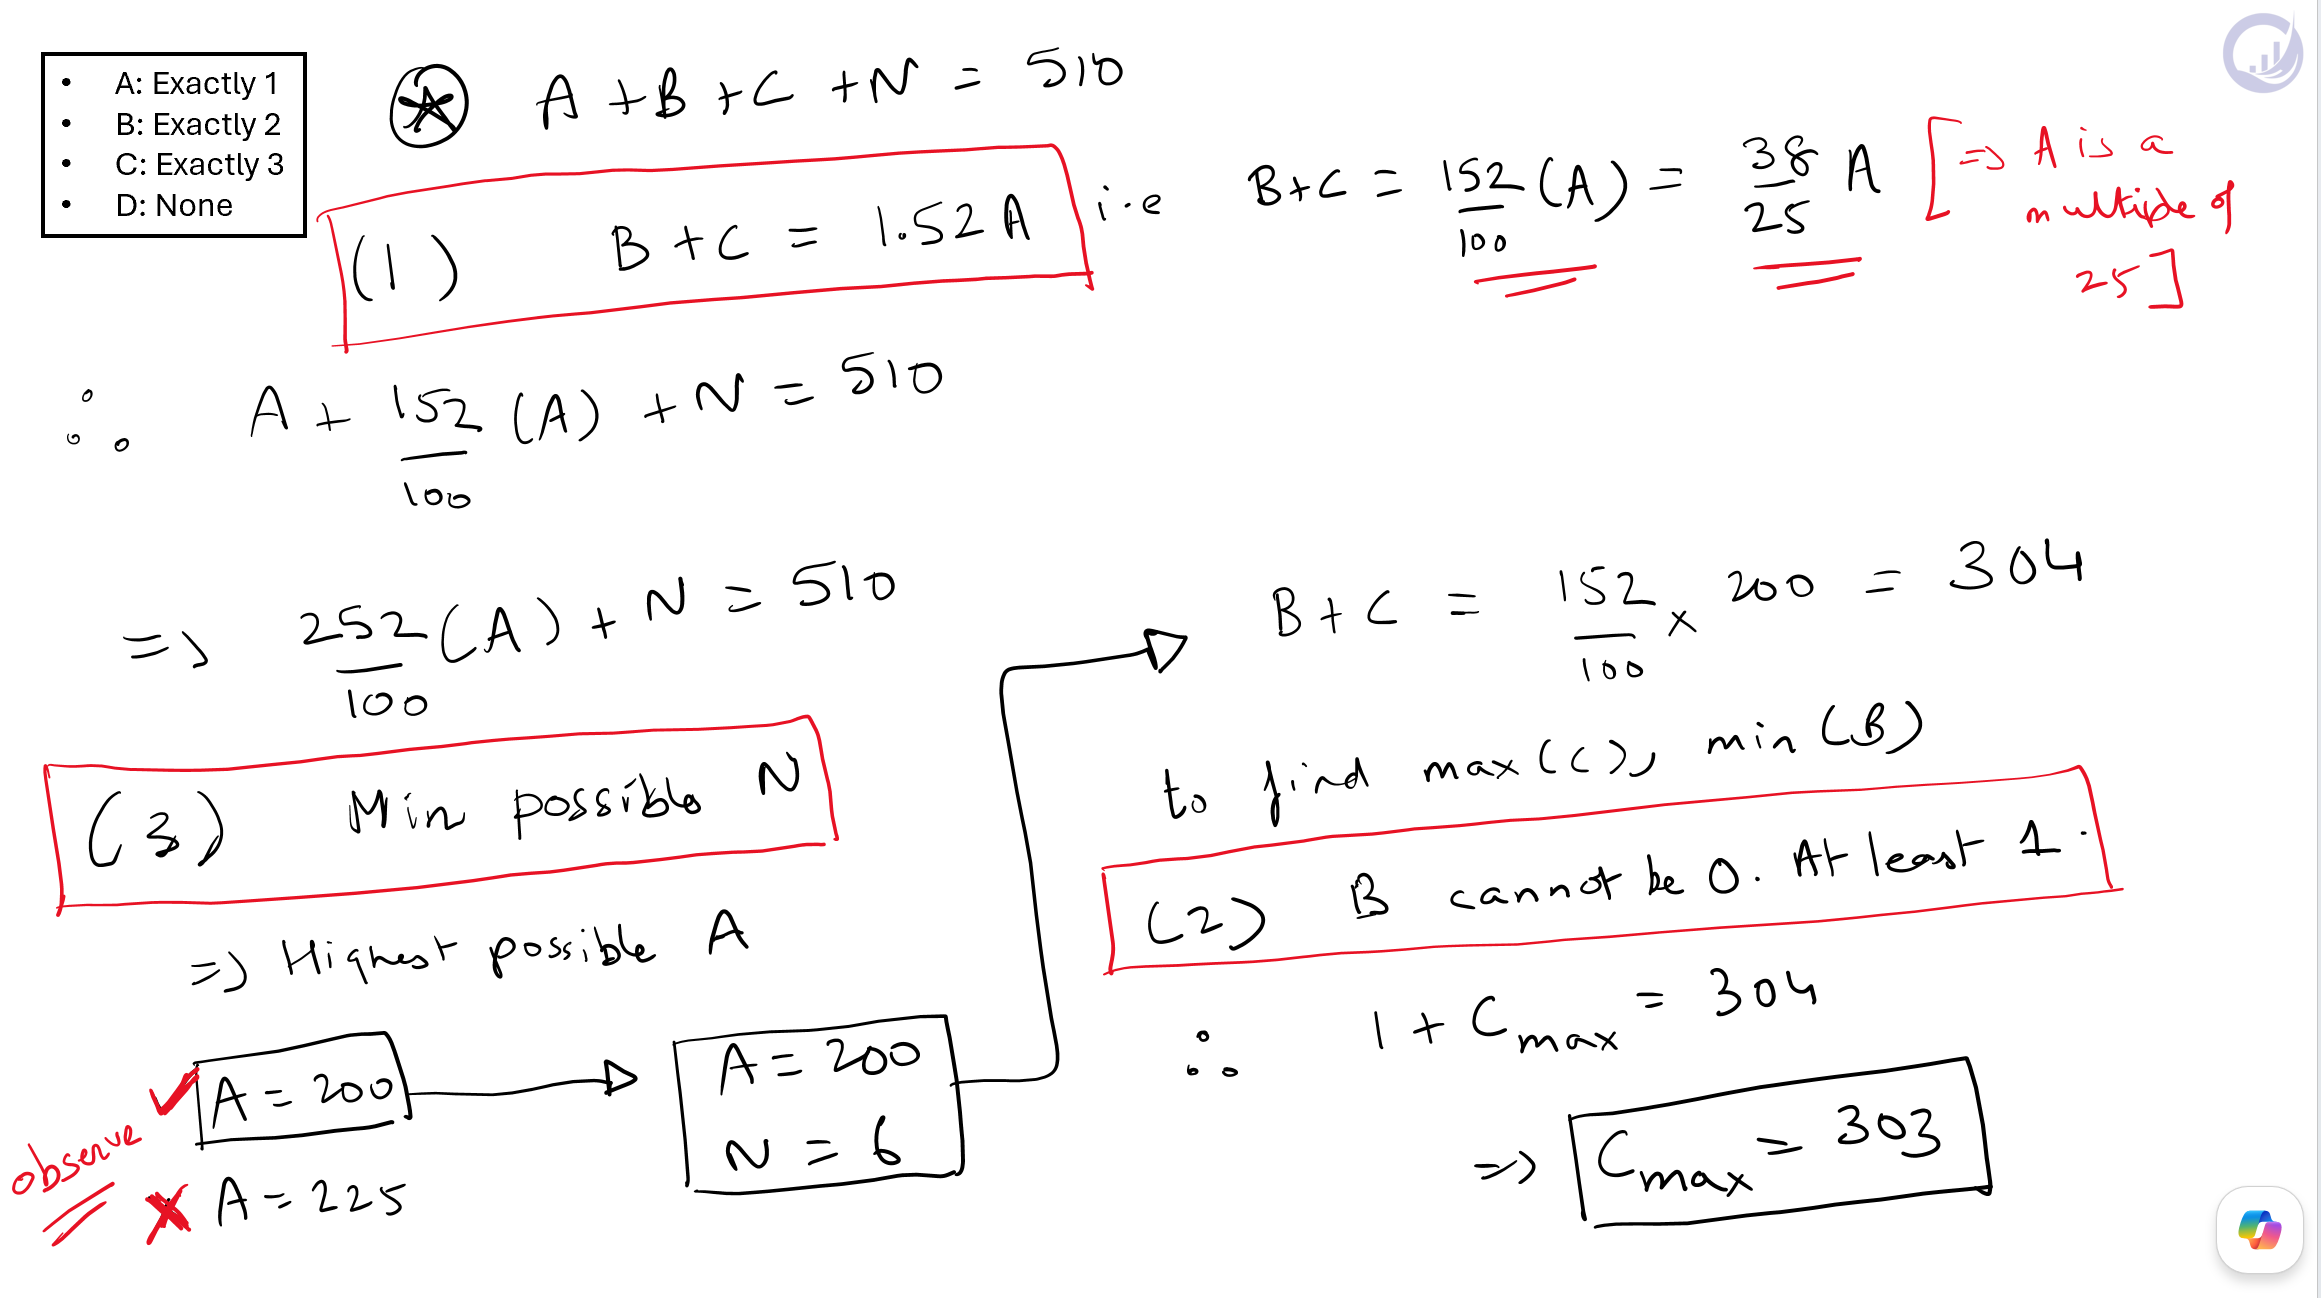 • A: Exactly 1
• B: Exactly 2
• C: Exactly 3
• D: None
A + B + C + N = 510
(1) B + C = 1.52 A
i.e B + C = 152/100 (A) = 38/25 A
[ => A is a
multiple of
25 ]
∴ A + 152/100 (A) + N = 510
=> 252/100 (A) + N = 510
(3) Min possible N
=> Highest possible A
observe
✓ A = 200
✗ A = 225
A = 200
N = 6
B + C = 152/100 × 200 = 304
to find max (C), min (B)
(2) B cannot be 0. At least 1.
∴ 1 + Cmax = 304
=> Cmax = 303